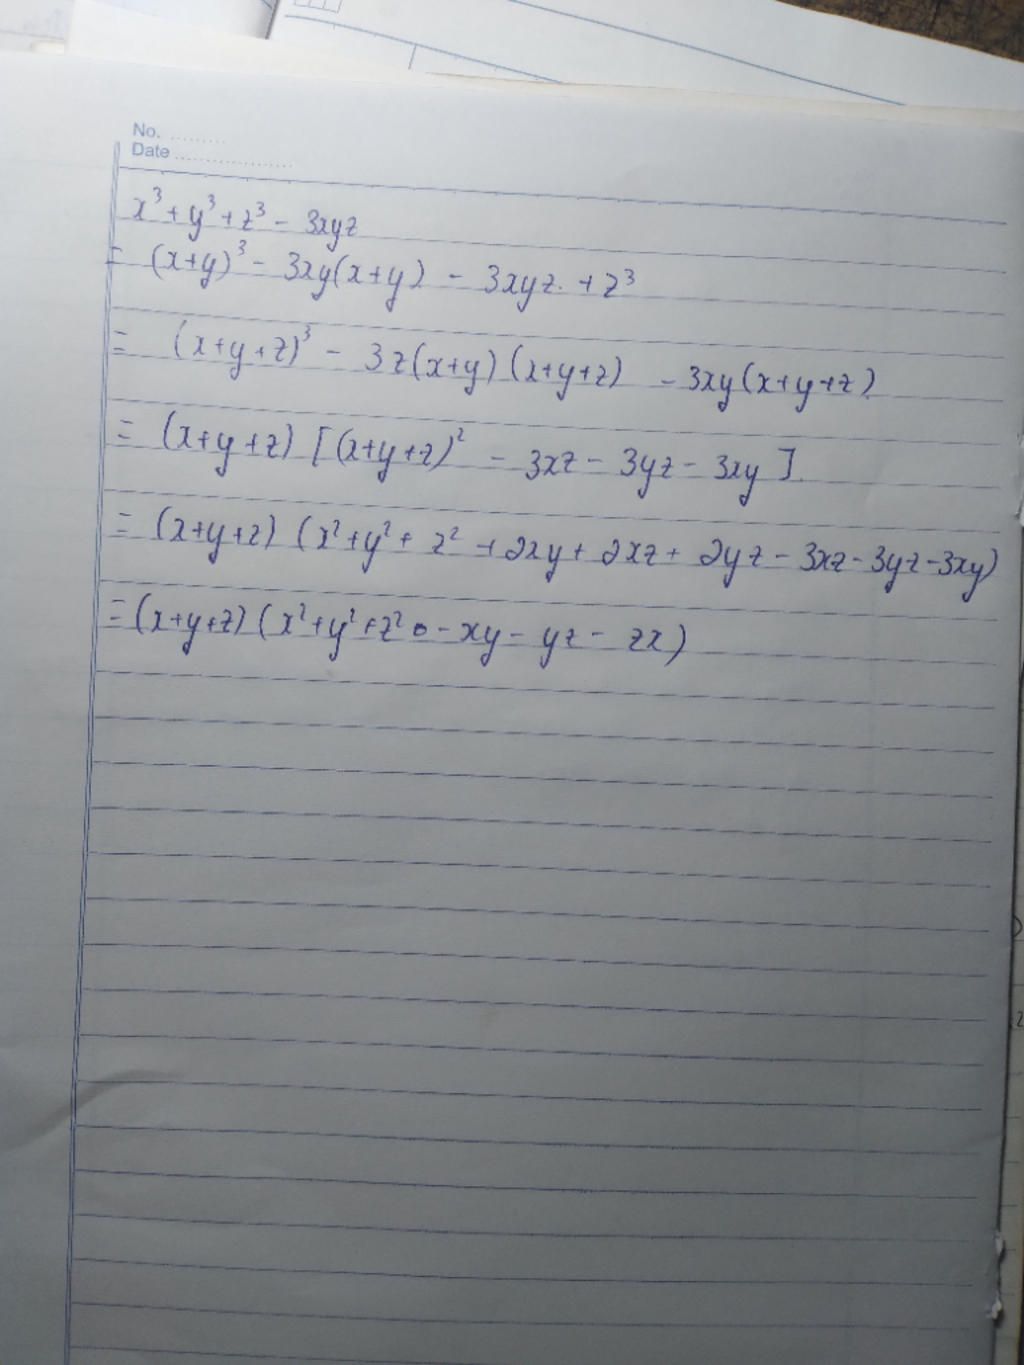 No. ..........
Date .....................
x³ + y³ + z³ - 3xyz
= (x+y)³ - 3xy(x+y) - 3xyz. + z³
= (x+y+z)³ - 3z(x+y)(x+y+z) - 3xy(x+y+z)
= (x+y+z) [(x+y+z)² - 3xz - 3yz - 3xy].
= (x+y+z) (x²+y²+ z² + 2xy + 2xz + 2yz - 3xz - 3yz - 3xy)
= (x+y+z) (x²+y²+z² - xy - yz - zx)